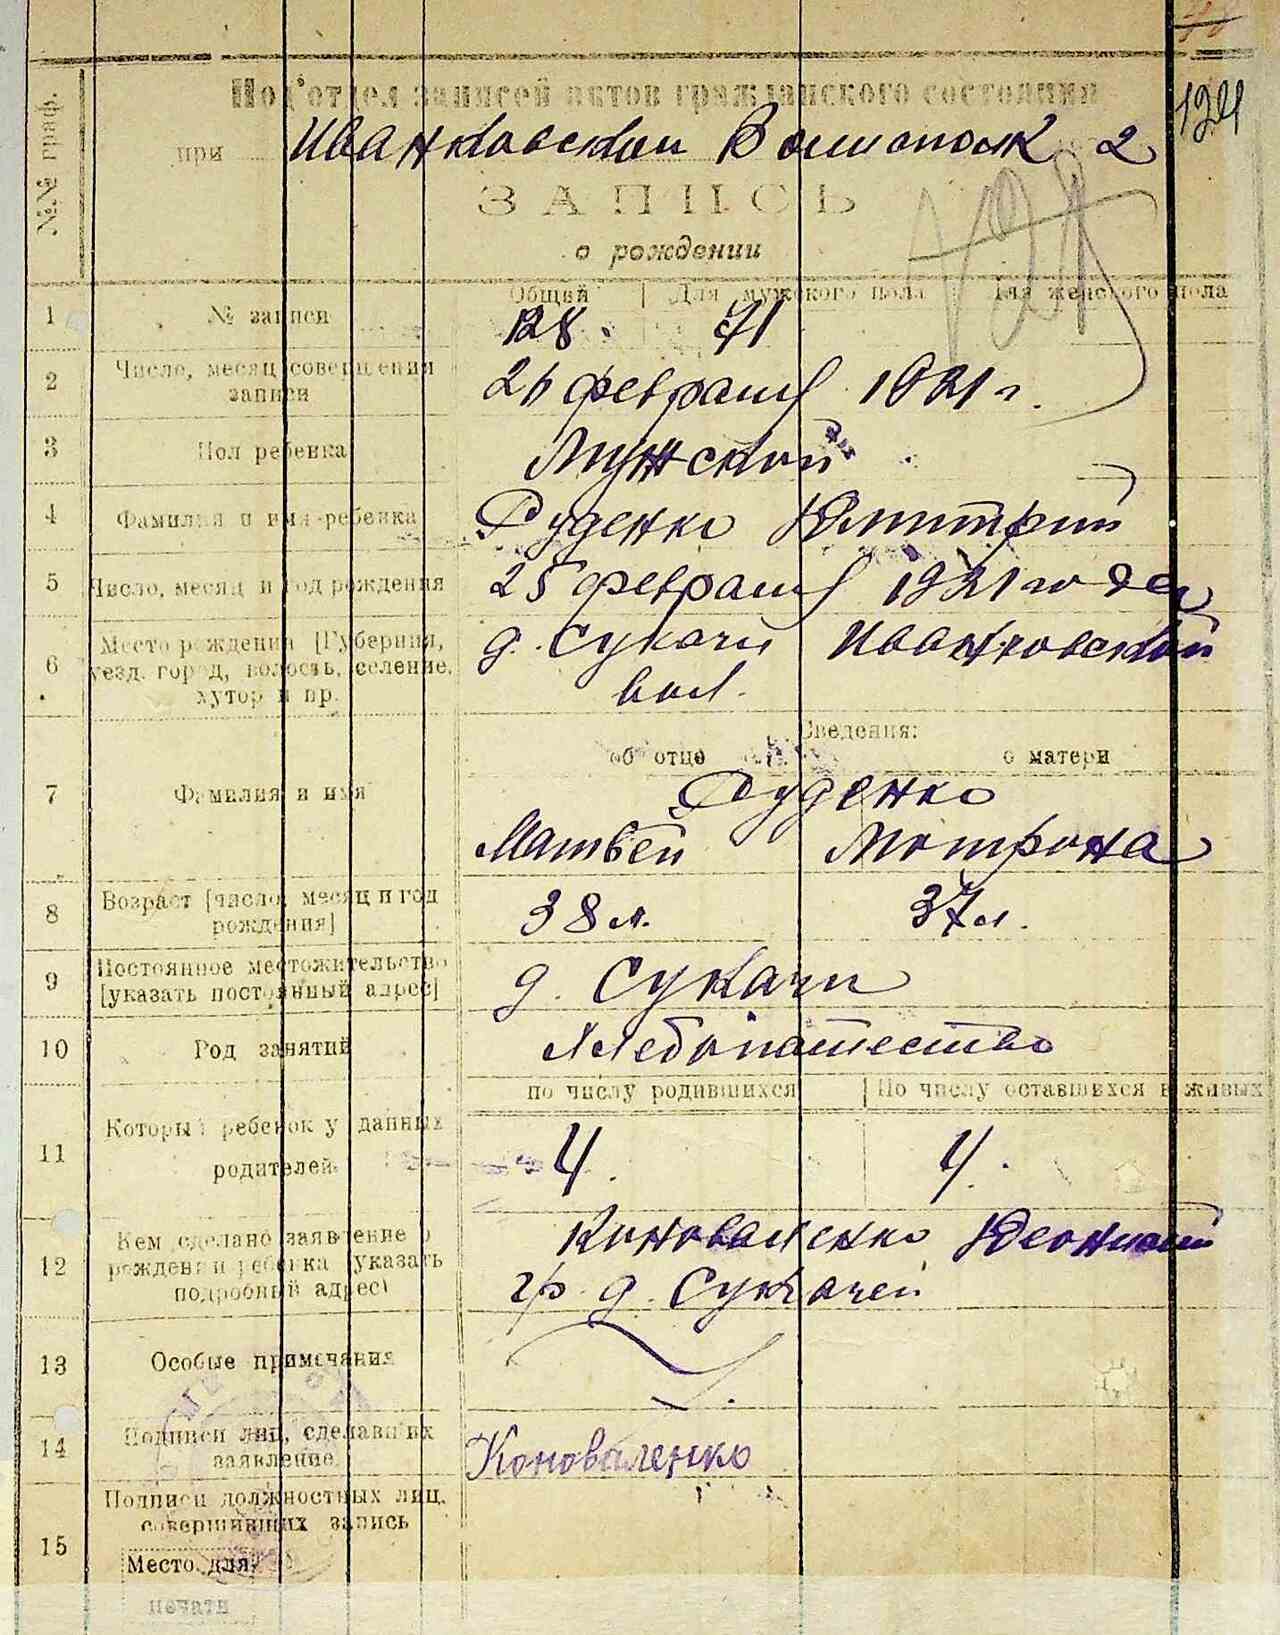 №№ граф.
Под'отдел записей актов гражданского состояния
при Иванковском
124
ЗАПИСЬ
о рождении
1 № записи Общий 128. Для мужского пола 71 Для женского пола
2 Число, месяц совершения записи 26 февраля 1921 г.
3 Пол ребенка Мужской
4 Фамилия и имя ребенка Руденко Дмитрий
5 Число, месяц и год рождения 25 февраля 1921 года
6 Место рождения [Губерния, уезд, город, волость, селение, хутор и пр. д. Сукачи Иванковской
вол.
Сведения:
об отце о матери
7 Фамилия и имя Руденко
Матвей Мотрона
8 Возраст [число, месяц и год рождения] 38 л. 37 л.
9 Постоянное местожительство [указать постоянный адрес] д. Сукачи
10 Род занятий Хлебопашество
по числу родившихся По числу оставшихся в живых
11 Который ребенок у данных родителей 4. 4.
12 Кем сделано заявление о рождении ребенка (указать подробный адрес) Коноваленко
гр. д. Сукачей
13 Особые примечания
14 Подписи лиц, сделавших заявление. Коноваленко
15 Подписи должностных лиц, совершивших запись
Место для
печати